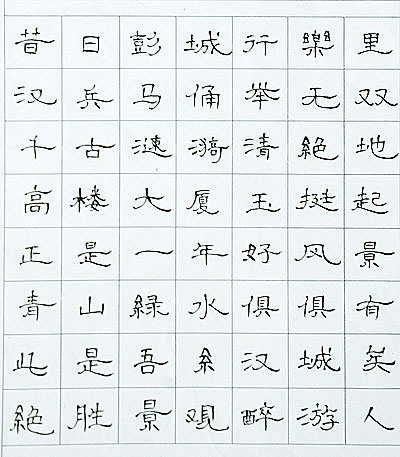 昔日彭城行樂里
汉兵马俑举无双
千古漣漪清絕地
高楼大厦玉挺起
正是一年好风景
青山緑水俱俱有
此是吾系汉城矣
絕胜景观醉游人